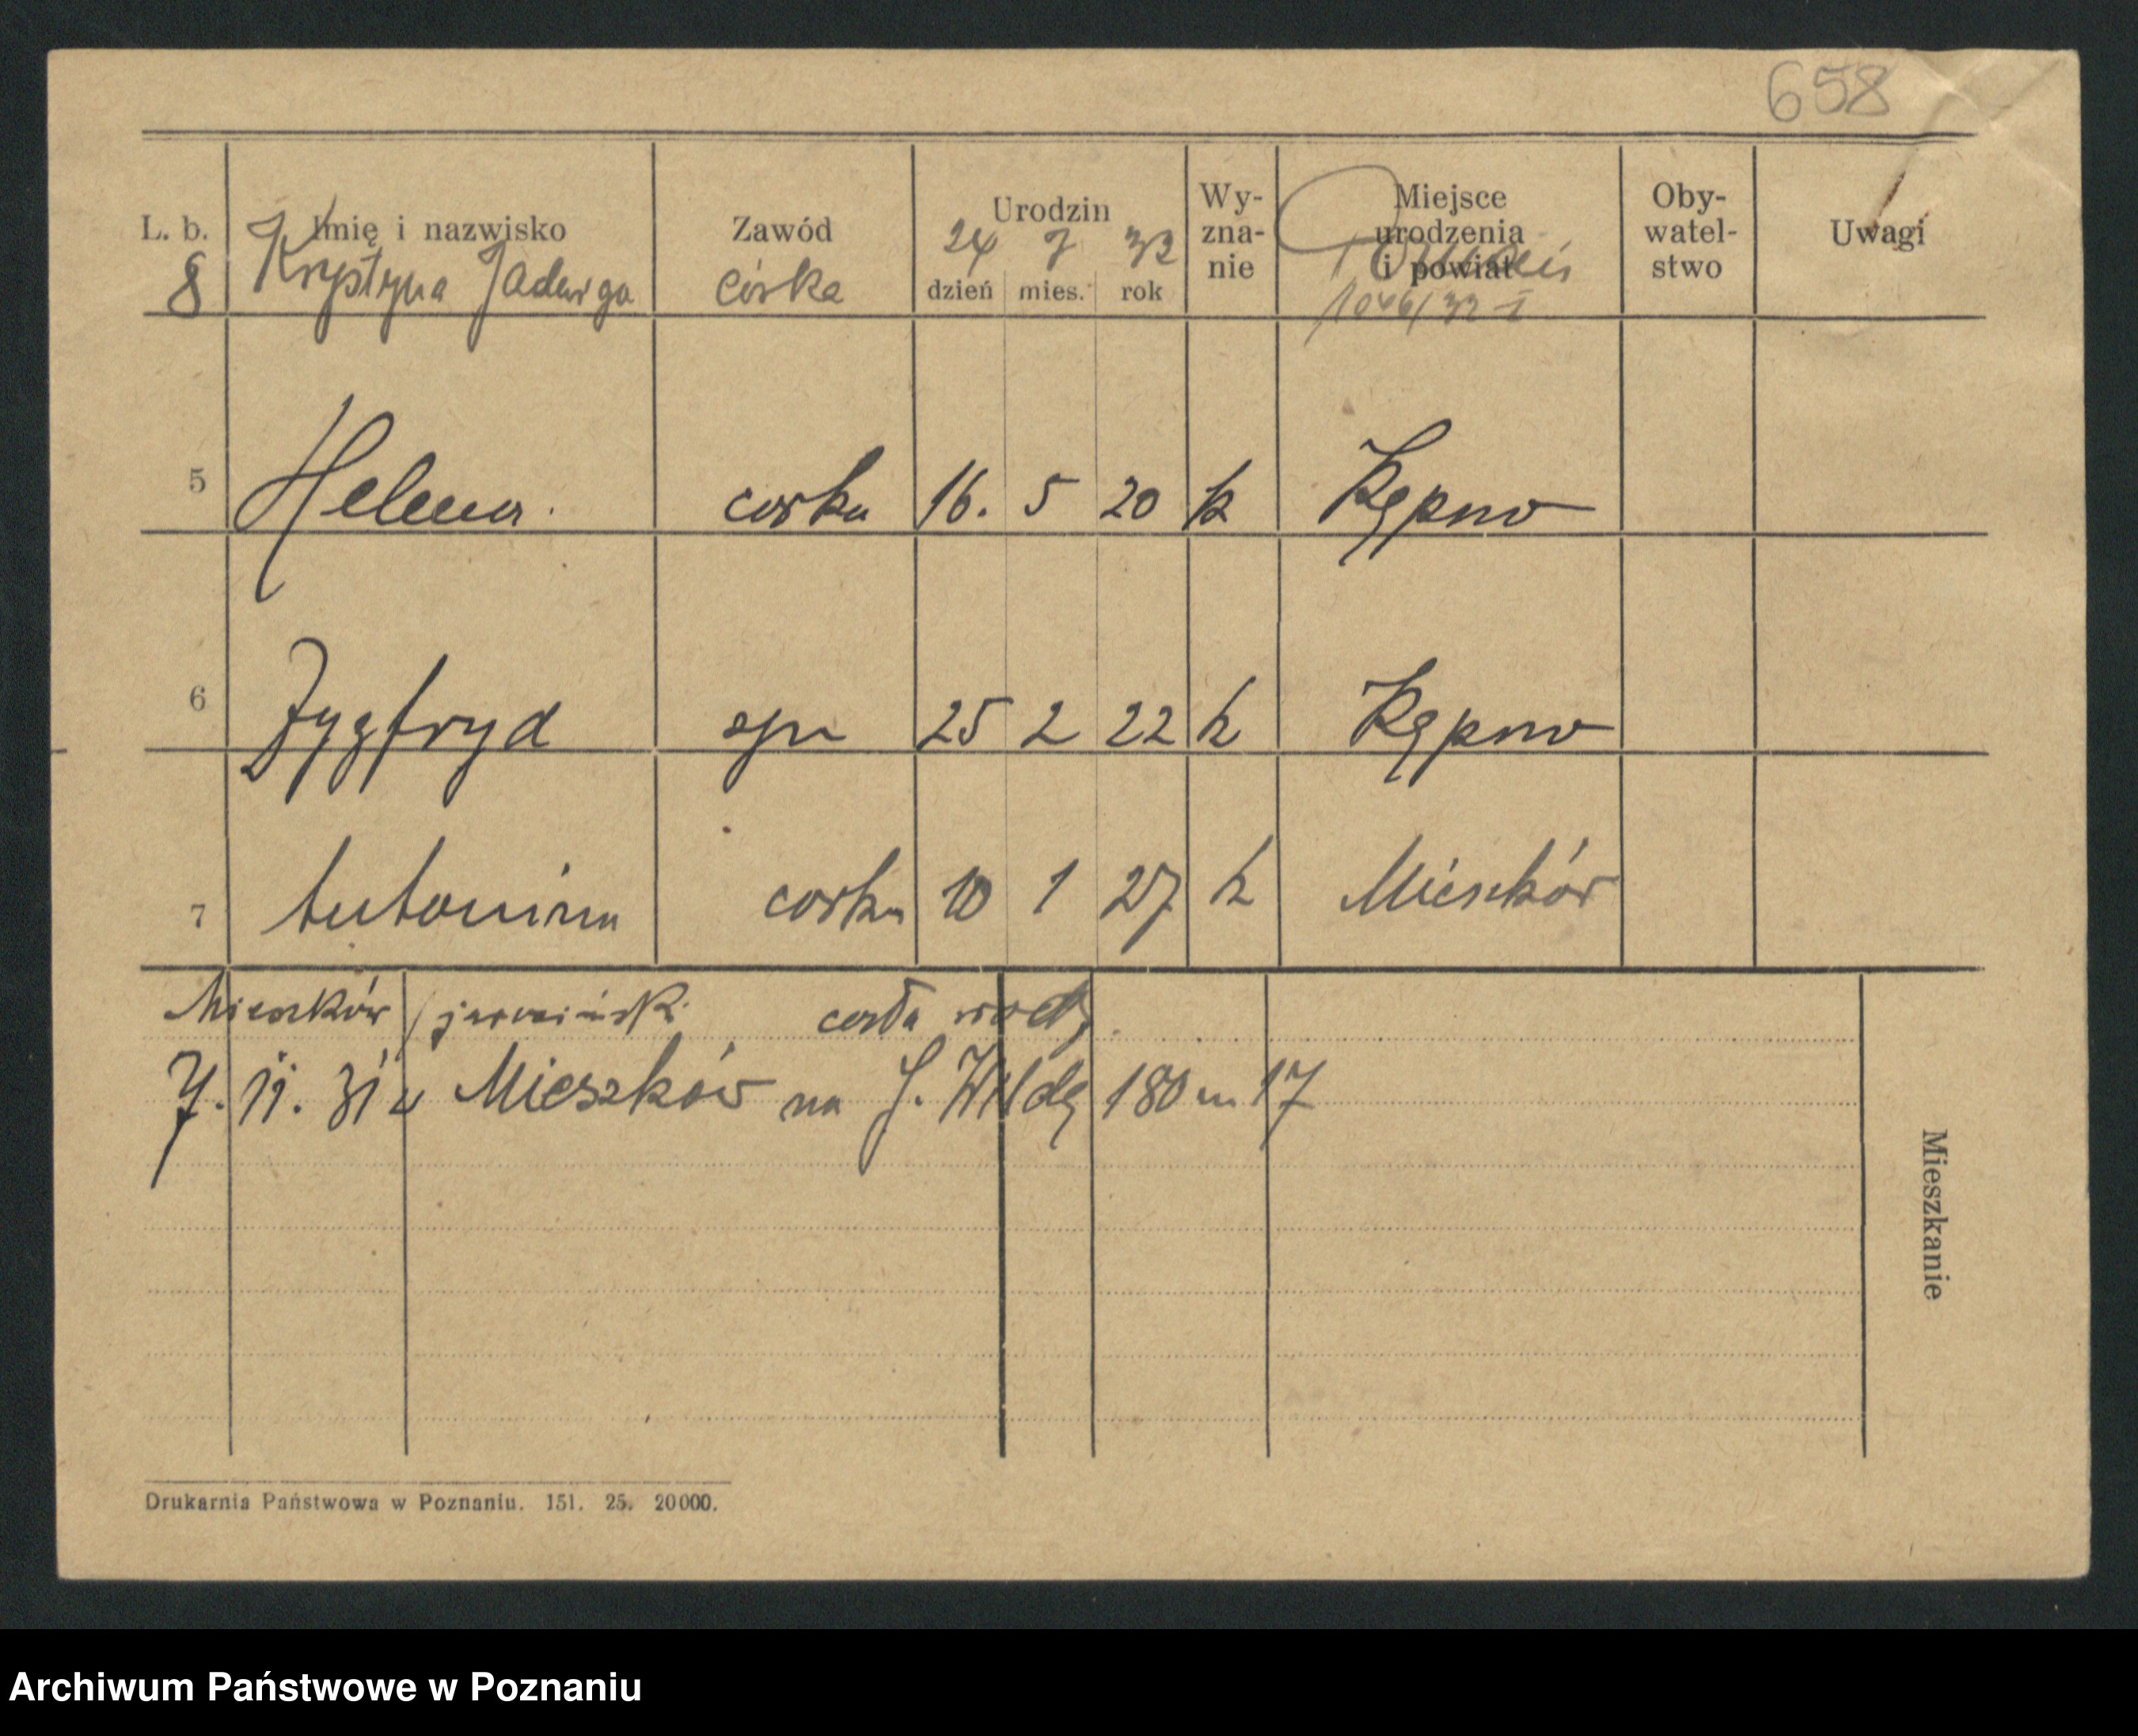 658
L. b. Imię i nazwisko Zawód Urodzin Wy-zna-nie Miejsce urodzenia i powiat Oby-watel-stwo Uwagi
24 7 32
dzień mies. rok
8 Krystyna Jadwiga córka Poznań
1046/32 I
5 Helena. corka 16. 5 20 k Kępno
6 Zygfryd syn 25 2 22 k Kępno
7 Antonina corka 10 1 27 k Mieszków
Mieszków / jarociński
7. 11. 31 z Mieszków na G. Wildę 180 m 17
Mieszkanie
Drukarnia Państwowa w Poznaniu. 151. 25. 20000.
Archiwum Państwowe w Poznaniu